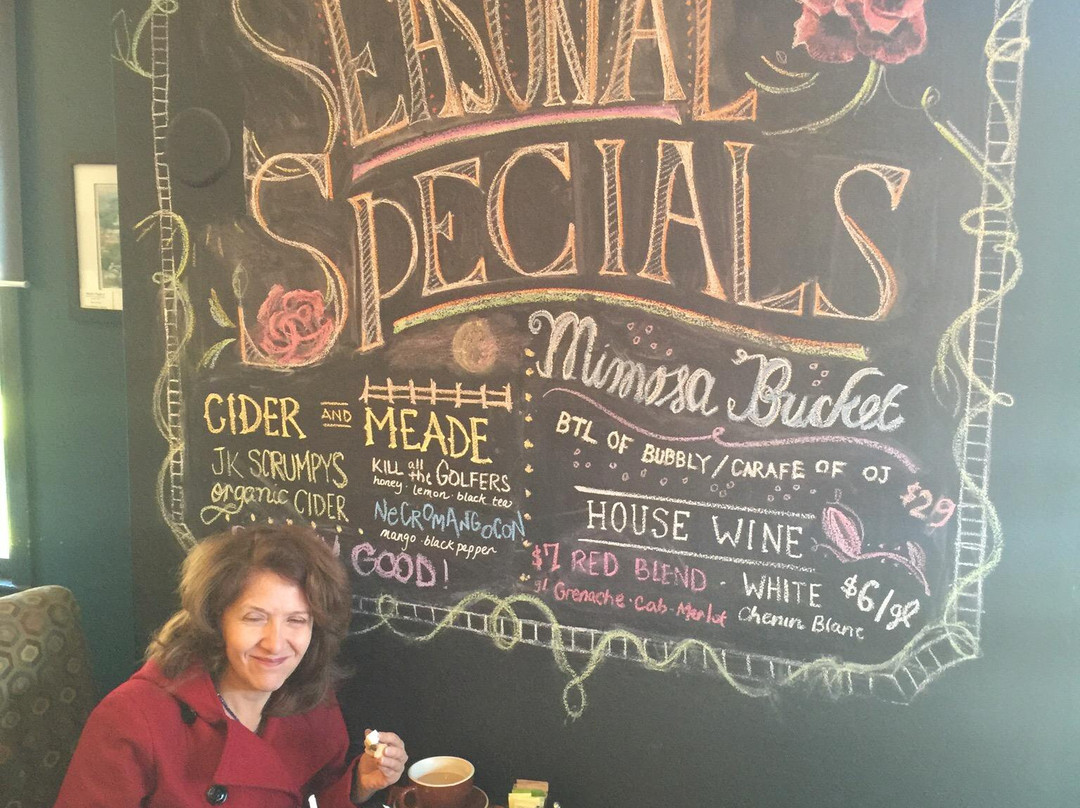 SEASONAL
SPECIALS
CIDER AND MEADE
JK SCRUMPYS
organic CIDER
KILL all the GOLFERS
honey · lemon · black tea
NECROMANGOCON
mango · black pepper
GOOD!
Mimosa Bucket
BTL OF BUBBLY/CARAFE OF OJ
$29
HOUSE WINE
$7 RED BLEND
gl Grenache · Cab · Merlot
WHITE $6/gl
Chenin Blanc